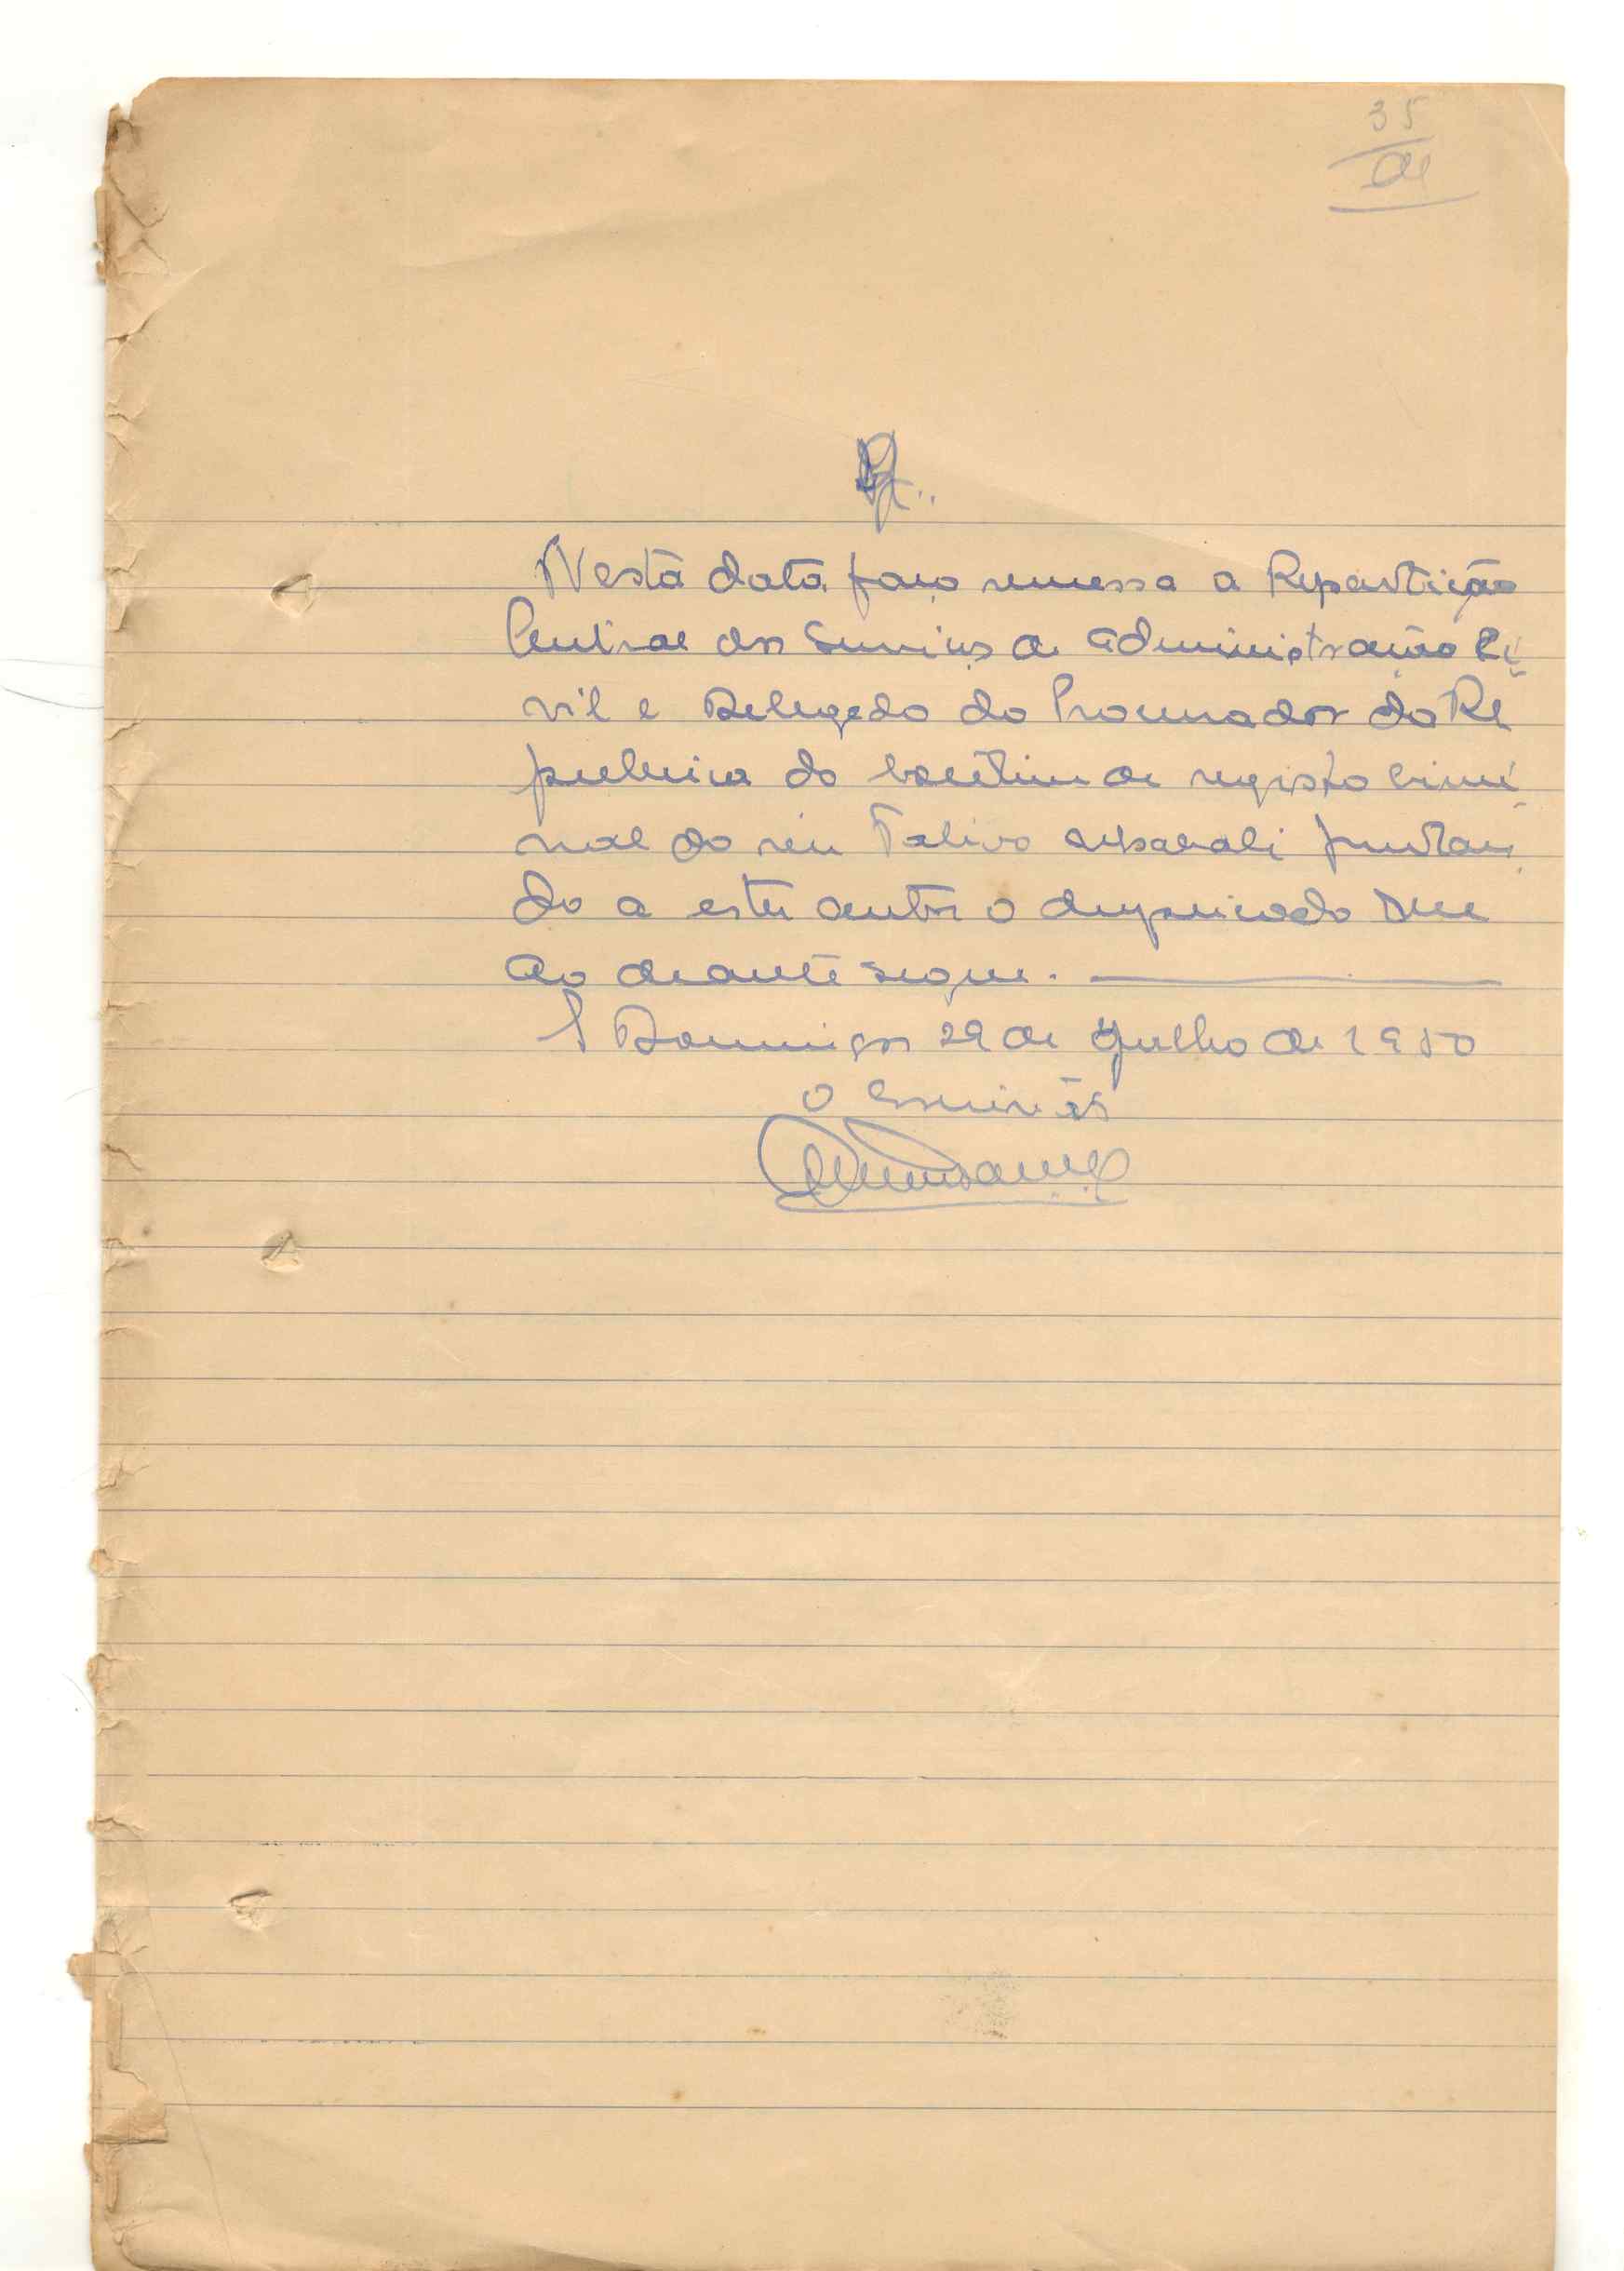 35
Nesta data faço remessa a Repartição
Central dos Serviços de Administração Ci
vil e Delegado do Procurador da Re
publica do boletim de registo crimi
nal do réu juntan
do a estes autos o duplicado que
ao deante segue.
S Domingos 29 de Julho de 1950
O escrivão